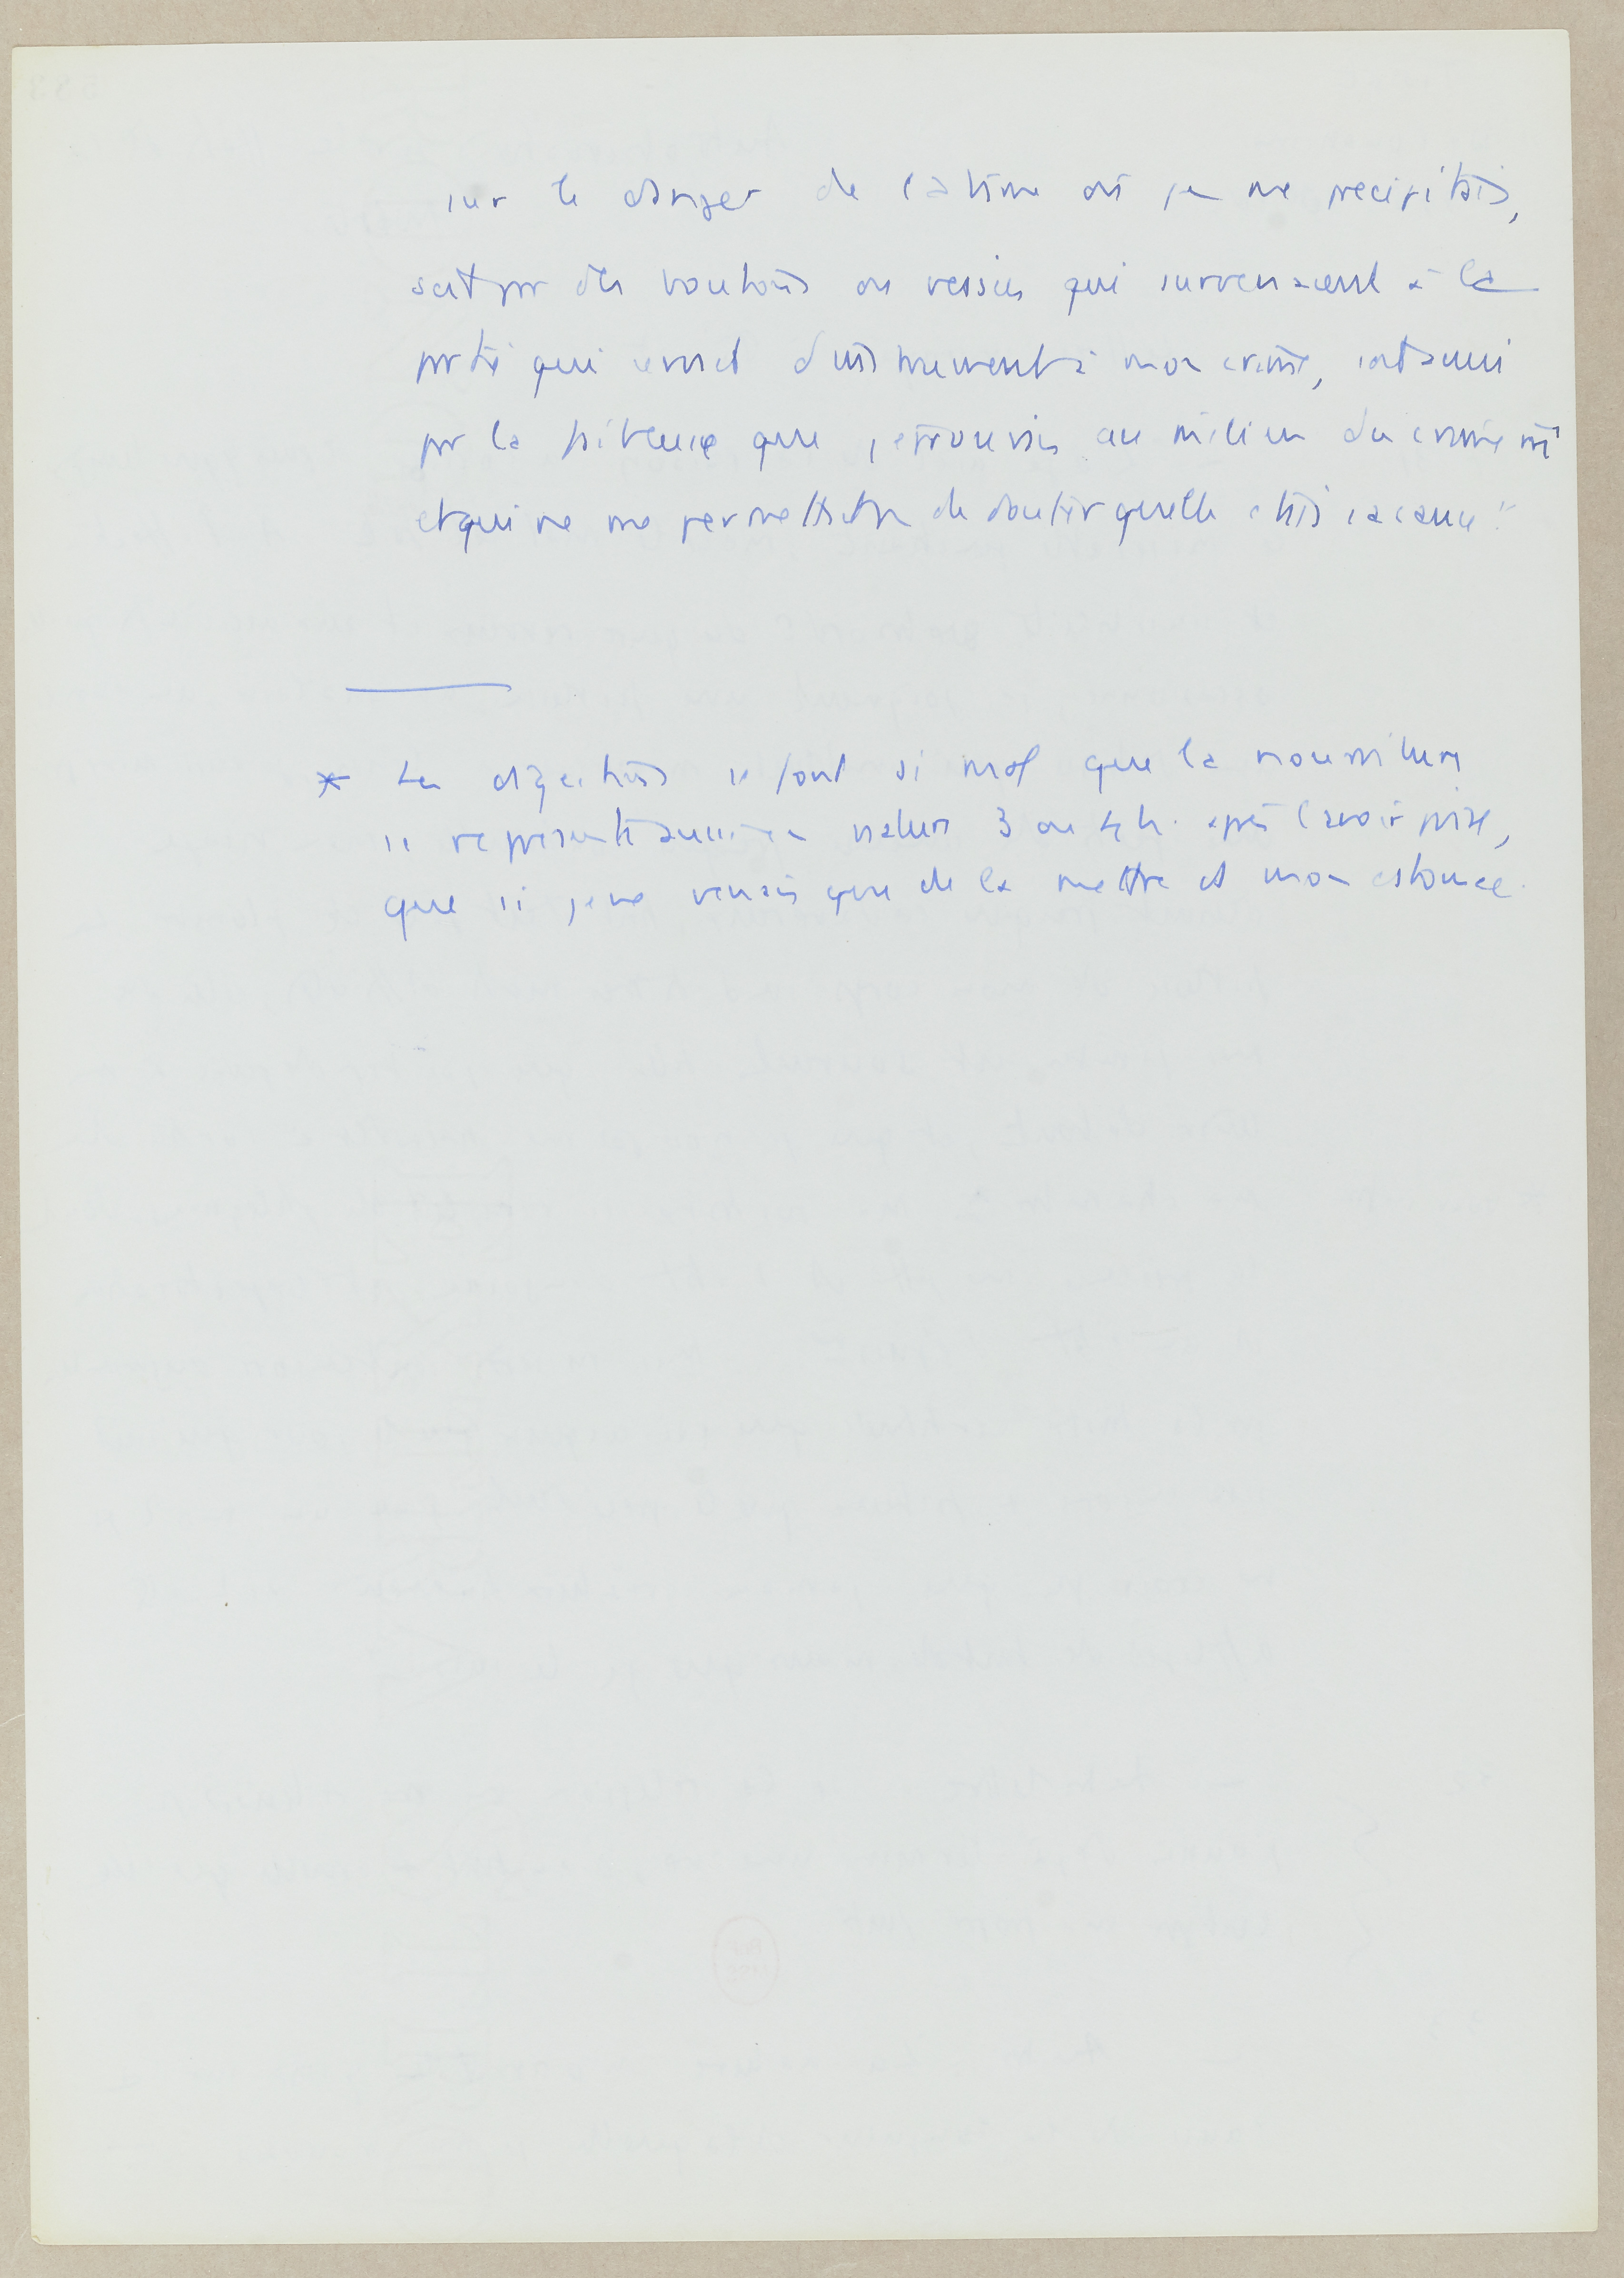 sur le danger de l'abîme où je me précipitais,
soit par des boutons ou vessies qui survenaient à la
partie qui servait d'instrument à mon crime, soit aussi
par la que j'éprouvais au milieu du crime m
et qui ne me permettait pas de douter qu'elle était la cause"
* Les digestions se font si mal que la nourriture
se représente aussi en nature 3 ou 4 h. après l'avoir prise,
que si je ne venais que de la mettre ds mon estomac.